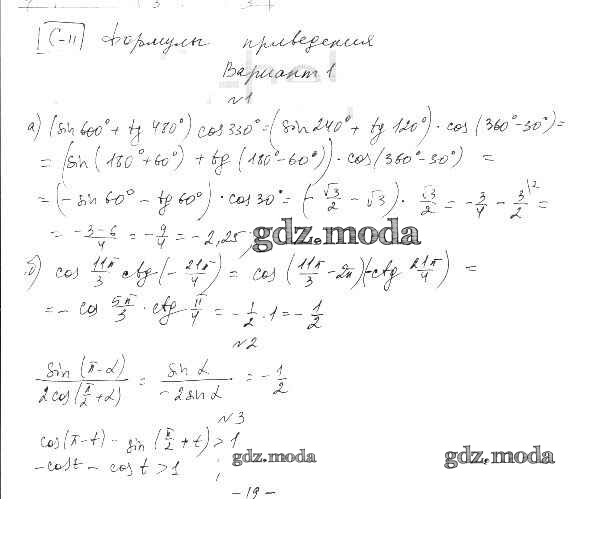 С-11 Формулы приведения
Вариант 1
№1
а) (sin 600° + tg 480°) cos 330° = (sin 240° + tg 120°) · cos (360° - 30°) =
= (sin (180° + 60°) + tg (180° - 60°)) · cos (360° - 30°) =
= (- sin 60° - tg 60°) · cos 30° = (- √3/2 - √3) · √3/2 = - 3/4 - 3/2 =
= (-3-6)/4 = -9/4 = -2,25
gdz.moda
б) cos 11π/3 ctg (- 21π/4) = cos (11π/3 - 2π)(-ctg 21π/4) =
= - cos 5π/3 · ctg π/4 = - 1/2 · 1 = - 1/2
№2
sin (π-α) / 2cos(π/2 + α) = sin α / -2 sin α = - 1/2
№3
cos(π-t) - sin (π/2 + t) > 1
-cost - cos t > 1
gdz.moda
gdz.moda
- 19 -